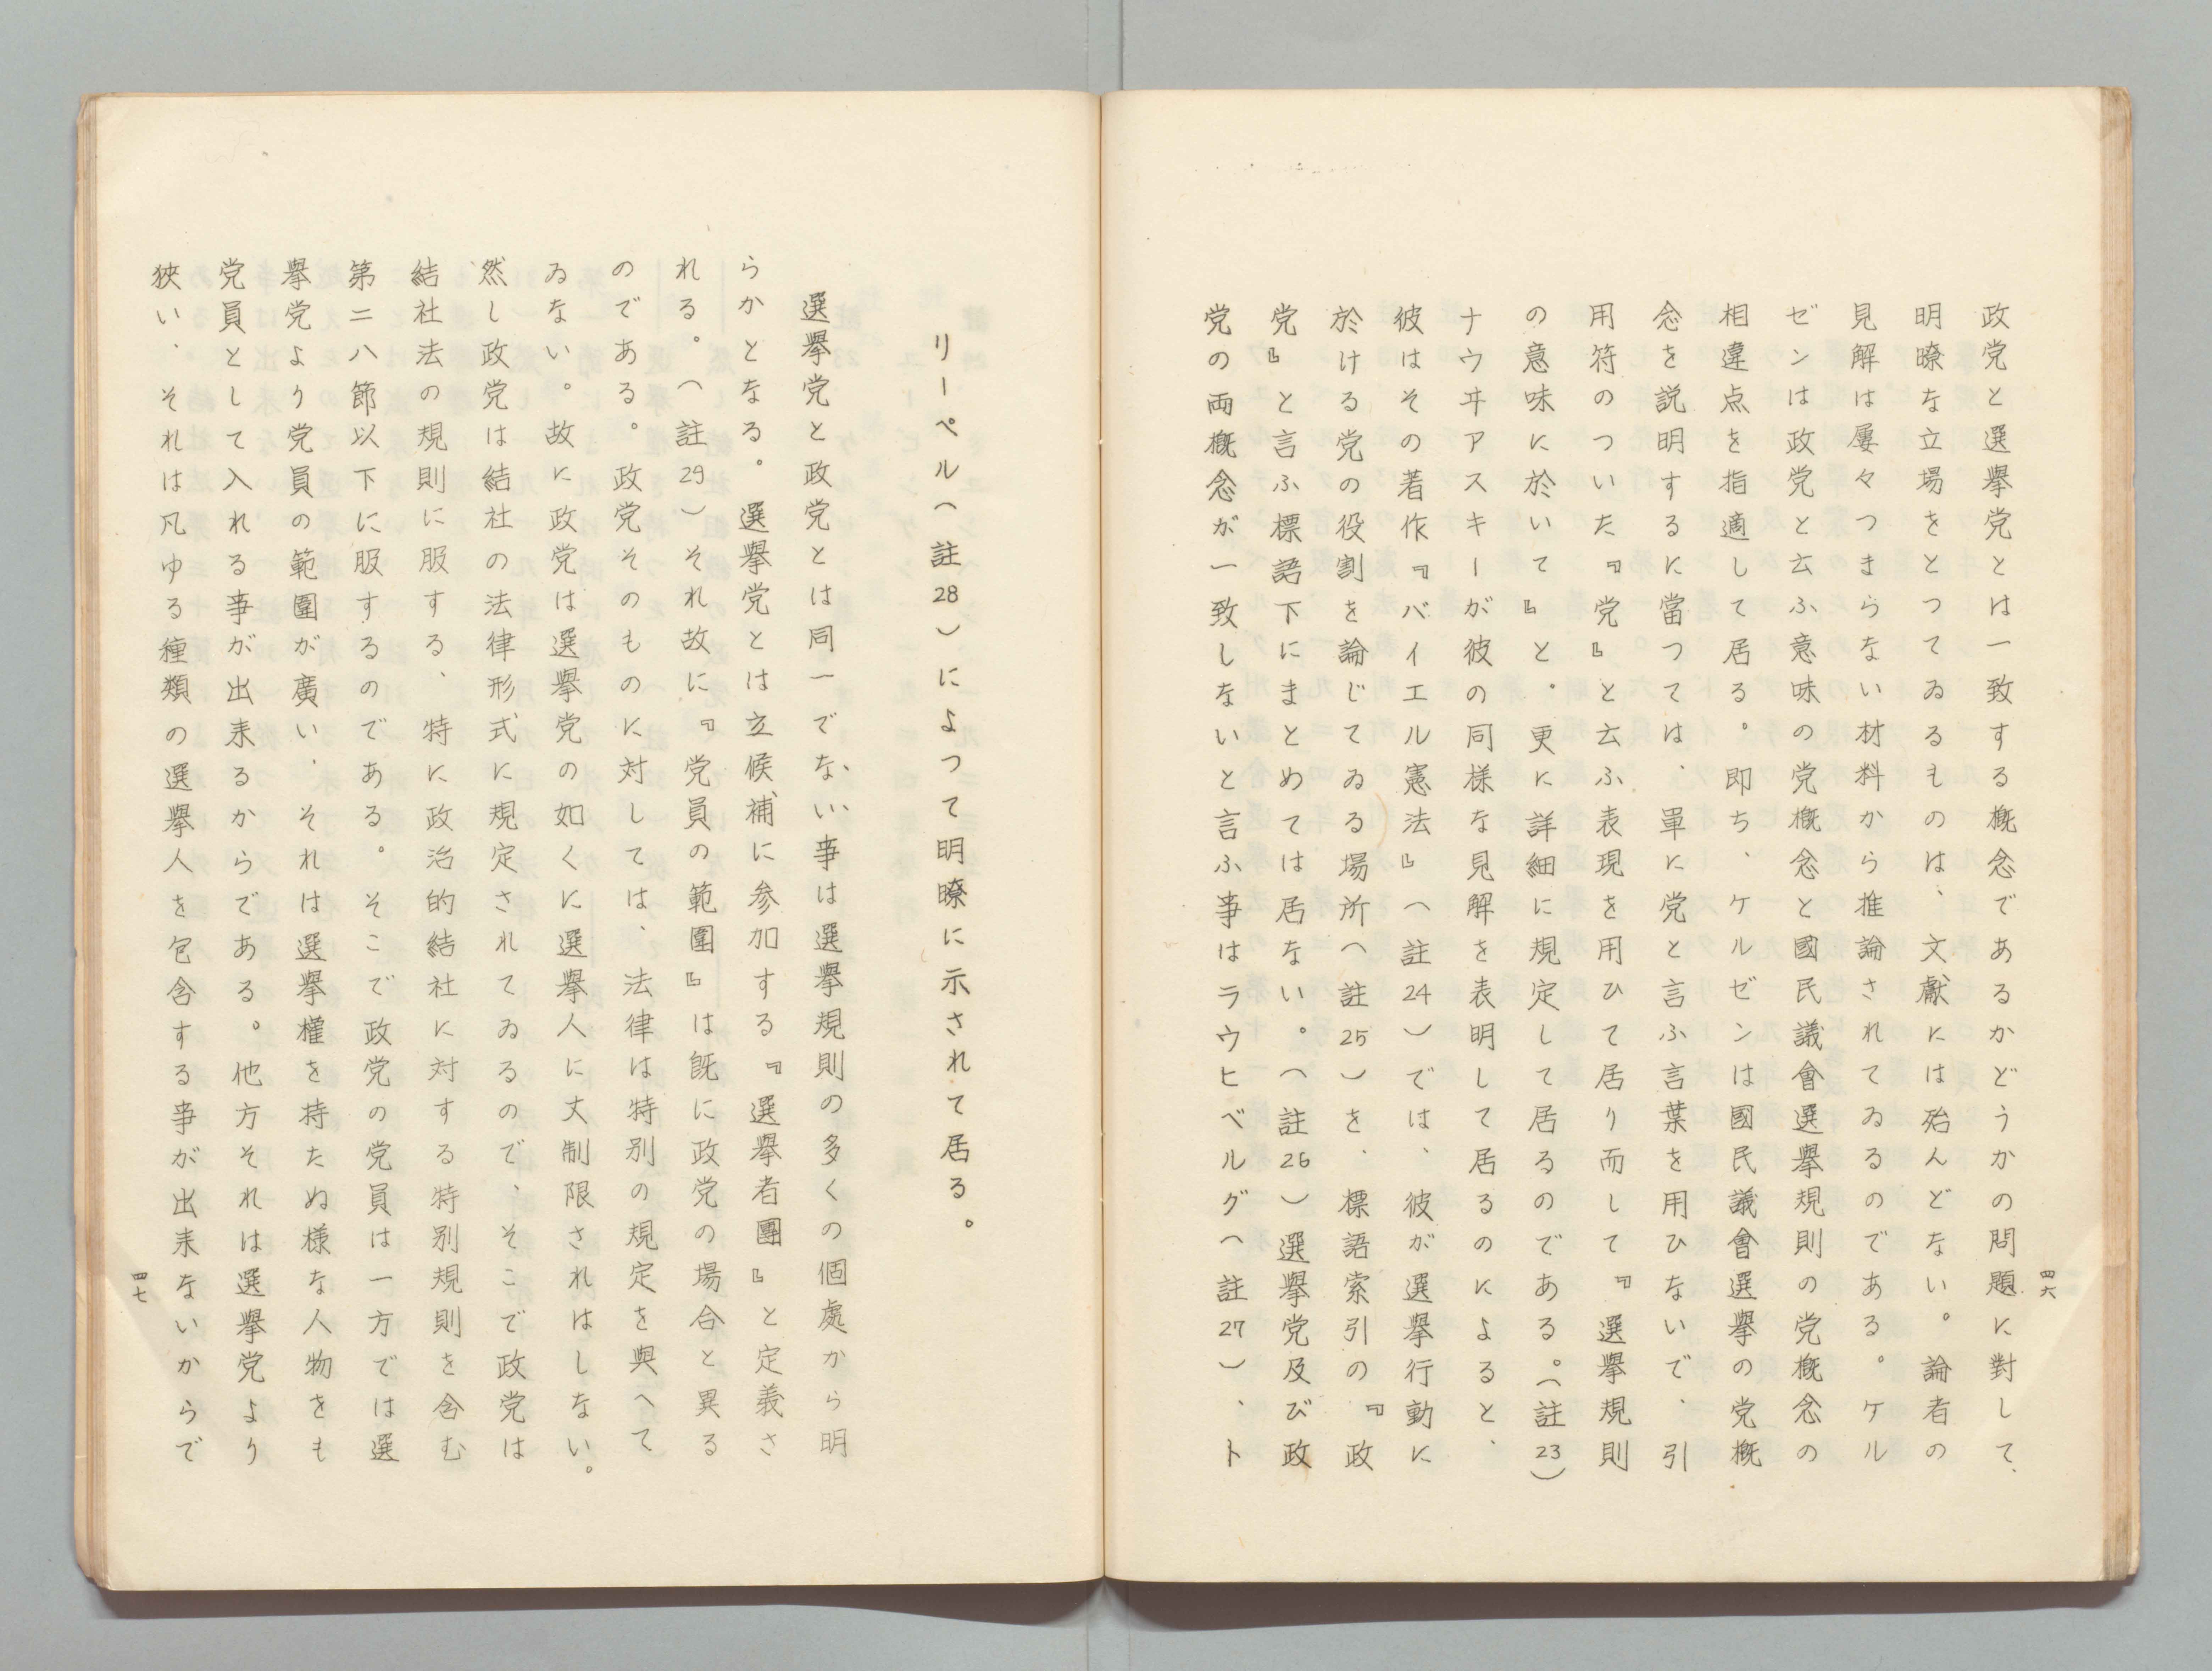 政党と選擧党とは一致する概念であるかどうかの問題に對して、
明瞭な立場をとつてゐるものは、文獻には殆んどない。論者の
見解は屢々つまらない材料から推論されてゐるのである。ケル
ゼンは政党と云ふ意味の党概念と國民議會選擧規則の党概念の
相違点を指適して居る。即ち、ケルゼンは國民議會選擧の党概
念を説明するに當つては、單に党と言ふ言葉を用ひないで、引
用符のついた『党』と云ふ表現を用ひて居り而して『選擧規則
の意味に於いて』と。更に詳細に規定して居るのである。(註23)
ナウヰアスキーが彼の同様な見解を表明して居るのによると、
彼はその着作『バイエル憲法』(註24)では、彼が選擧行動に
於ける党の役割を論じてゐる場所(註25)を、標語索引の『政
党』と言ふ標語下にまとめては居ない。(註26)選擧党及び政
党の両概念が一致しないと言ふ事はラウヒベルグ(註27)、ト
四六
リーペル(註28)によつて明瞭に示されて居る。
選擧党と政党とは同一でない事は選擧規則の多くの個處から明
らかとなる。選擧党とは立候補に参加する『選擧者團』と定義さ
れる。(註29)それ故に『党員の範圍』は既に政党の場合と異る
のである。政党そのものに対しては、法律は特別の規定を與へて
ゐない。故に政党は選擧党の如くに選擧人に丈制限されはしない。
然し政党は結社の法律形式に規定されてゐるので、そこで政党は
結社法の規則に服する、特に政治的結社に対する特別規則を含む
第二八節以下に服するのである。そこで政党の党員は一方では選
擧党より党員の範圍が廣い、それは選擧權を持たぬ様な人物をも
党員として入れる事が出来るからである。他方それは選擧党より
狹い、それは凡ゆる種類の選擧人を包含する事が出来ないからで
四七